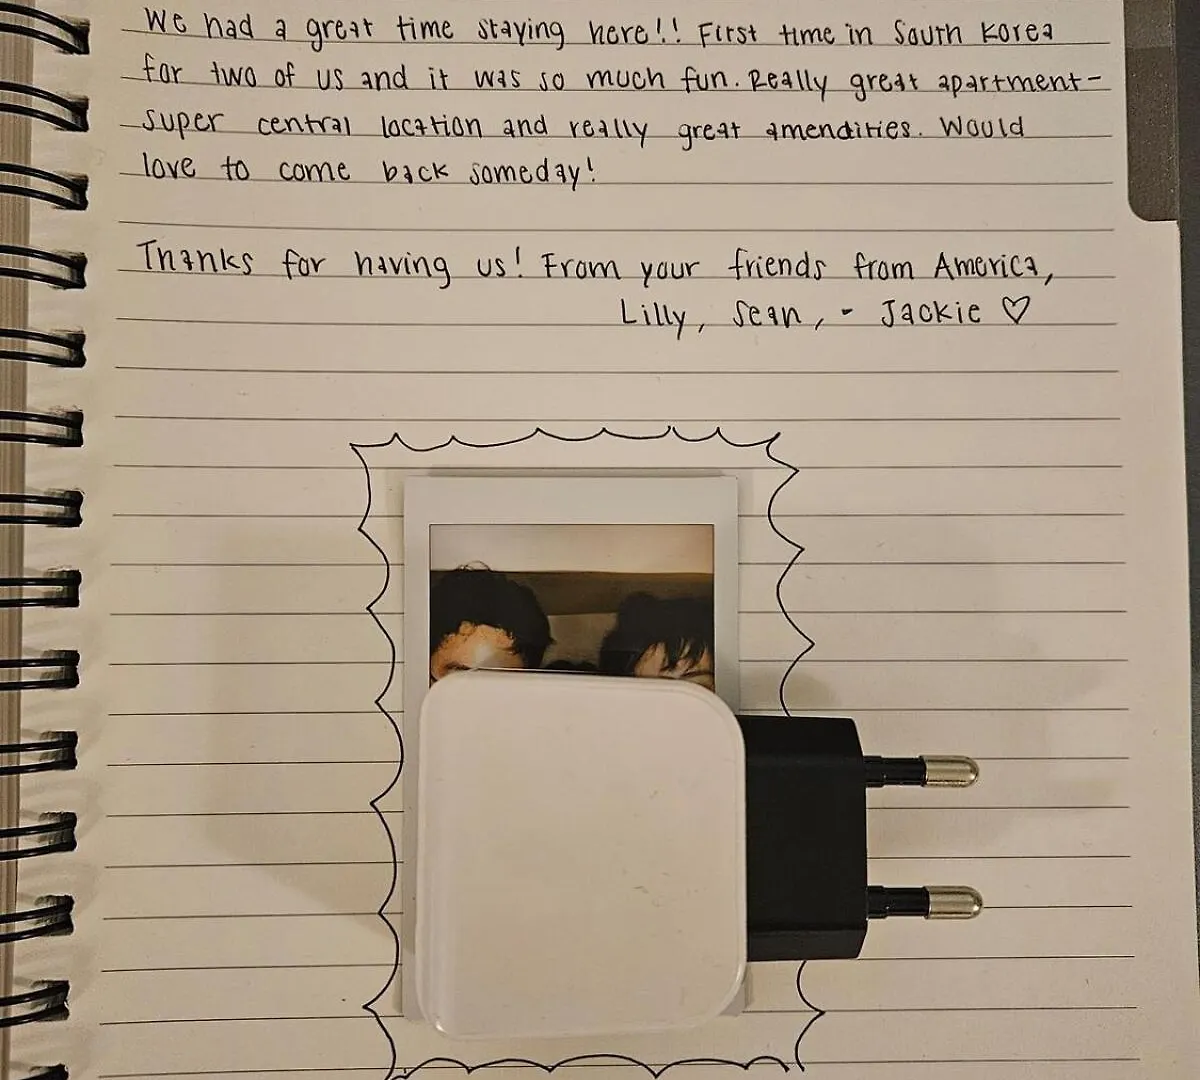 We had a great time staying here!! First time in South Korea
for two of us and it was so much fun. Really great apartment-
super central location and really great amendities. Would
love to come back someday!
Thanks for having us! From your friends from America,
Lilly, Sean, - Jackie ♡